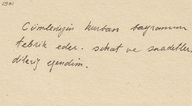 Cümlenizin kurban bayramını
tebrik eder. sıhat ve saadetler
dileriz efendim.